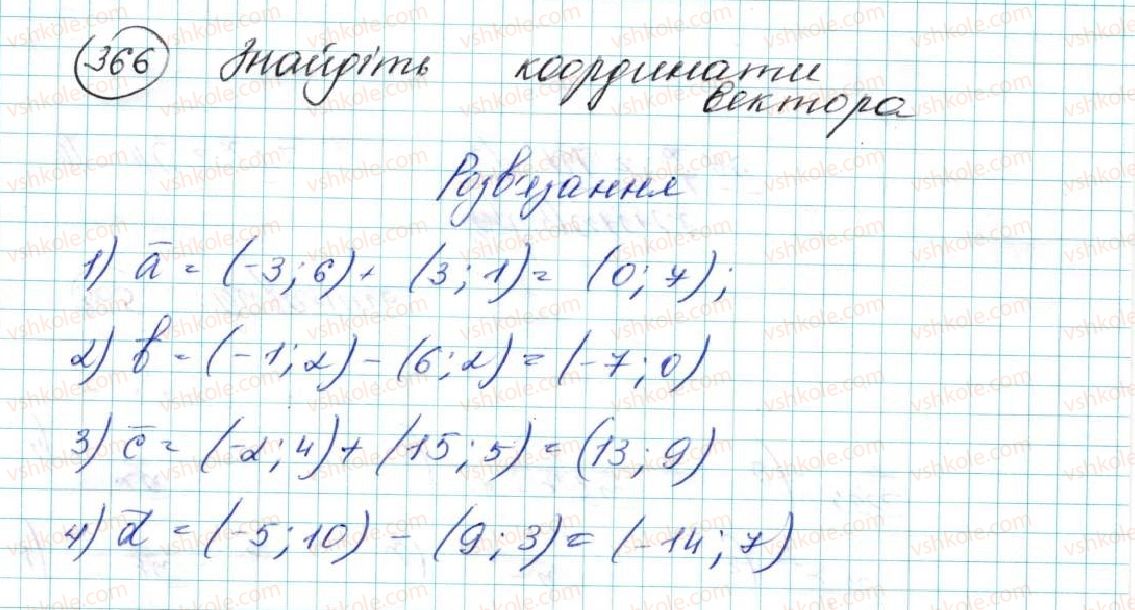 366 Знайдіть координати
вектора
Розв'язання
1) a̅ = (-3; 6) + (3; 1) = (0; 7);
2) b̅ = (-1; 2) - (6; 2) = (-7; 0)
3) c̅ = (-2; 4) + (15; 5) = (13; 9)
4) d̅ = (-5; 10) - (9; 3) = (-14; 7)
vshkole.com